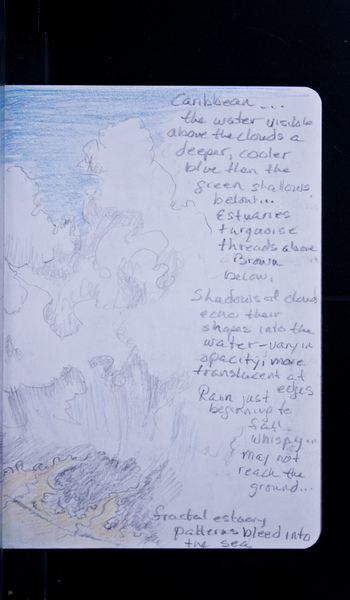 Caribbean ...
the water visible
above the clouds a
deeper, cooler
blue than the
green shallows
below...
Estuaries
turquoise
threads above
Brown
below.
Shadows of clouds
echo their
shapes into the
water - vary in
opacity, more
translucent at
edges
Rain just
beginning to
fall
whispy...
may not
reach the
ground...
fractal estuary
patterns bleed into
the sea